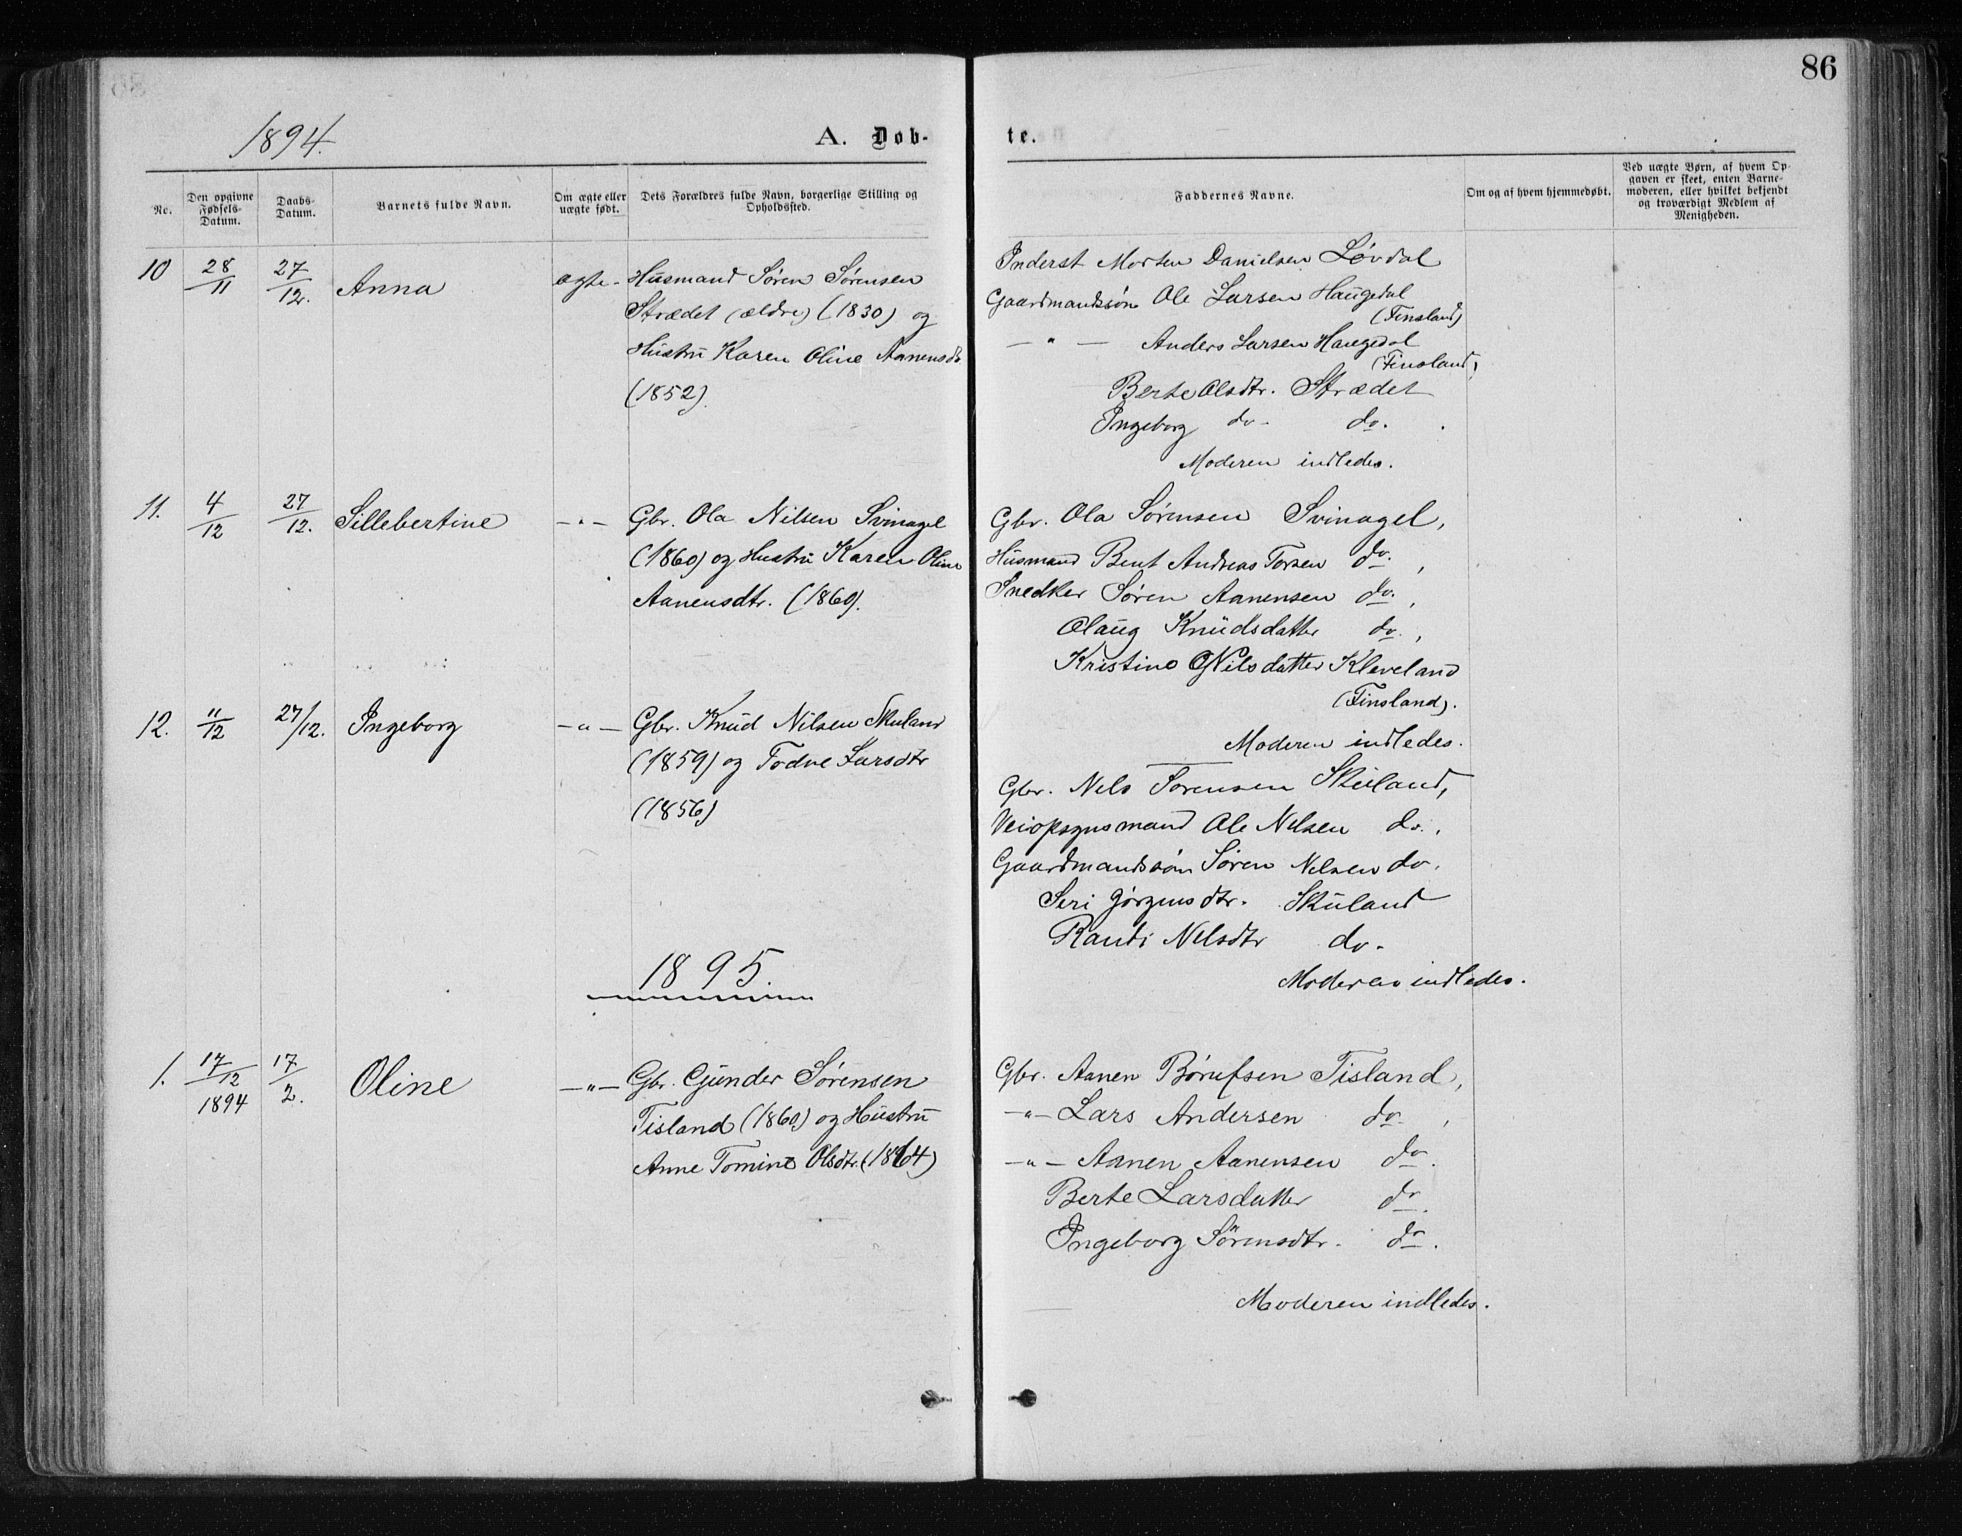 86
1894.
A. Døb-
te.
No.
Den opgivne Fødsels-Datum.
Daabs-Datum.
Barnets fulde Navn.
Om ægte eller uægte født.
Dets Forældres fulde Navn, borgerlige Stilling og Opholdssted.
Faddernes Navne.
Om og af hvem hjemmedøbt.
Ved uægte Børn, af hvem Op-
gaven er skeet, enten Barne-
moderen, eller hvilket bekjendt
og troværdigt Medlem af
Menigheden.
10 28/11 27/12. Anna ægte- Husmand Søren Sørensen
Strædet (ældre) (1830) og
Hustru Karen Oline Aanensdtr
(1852).
Inderst Morten Danielsen Løvdal
Gaardmandssøn Ole Larsen Haugedal
(Finsland)
— " — Anders Larsen Haugedal
(Finsland)
Berte Olsdtr. Strædet
Ingeborg do- do.
Moderen indledes.
11. 4/12 27/12. Sillebertine -"- Gbr. Ola Nilsen Svinagel
(1860) og Hustru Karen Oline
Aanensdtr. (1860).
Gbr. Ola Sørensen Svinagel,
Husmand Bent Andreas Torsen do.,
Snedker Søren Aanensen do.,
Olaug Knudsdatter do.,
Kristine Nilsdatter Kleveland
(Finsland).
Moderen indledes.
12. 11/12 27/12. Ingeborg -"- Gbr. Knud Nilsen Skuland
(1859) og Todne Larsdtr
(1856)
Gbr. Nils Sorensen Skuland,
Veiopsynsmand Ole Nilsen do.,
Gaardmandssøn Søren Nilsen do.
Seri Jørgensdtr. Skuland
Randi Nilsdtr do-
Moderen indledes.
1895.
1. 17/12 1894 17/2. Oline -"- Gbr. Gunder Sørensen
Tisland (1860) og Hustru
Anne Tomine Olsdtr. (1864)
Gbr. Aanen Børufsen Tisland,
-"- Lars Andersen do.,
-"- Aanen Aanensen do.
Berte Larsdatter do.
Ingeborg Sørensdtr. do.
Moderen indledes.